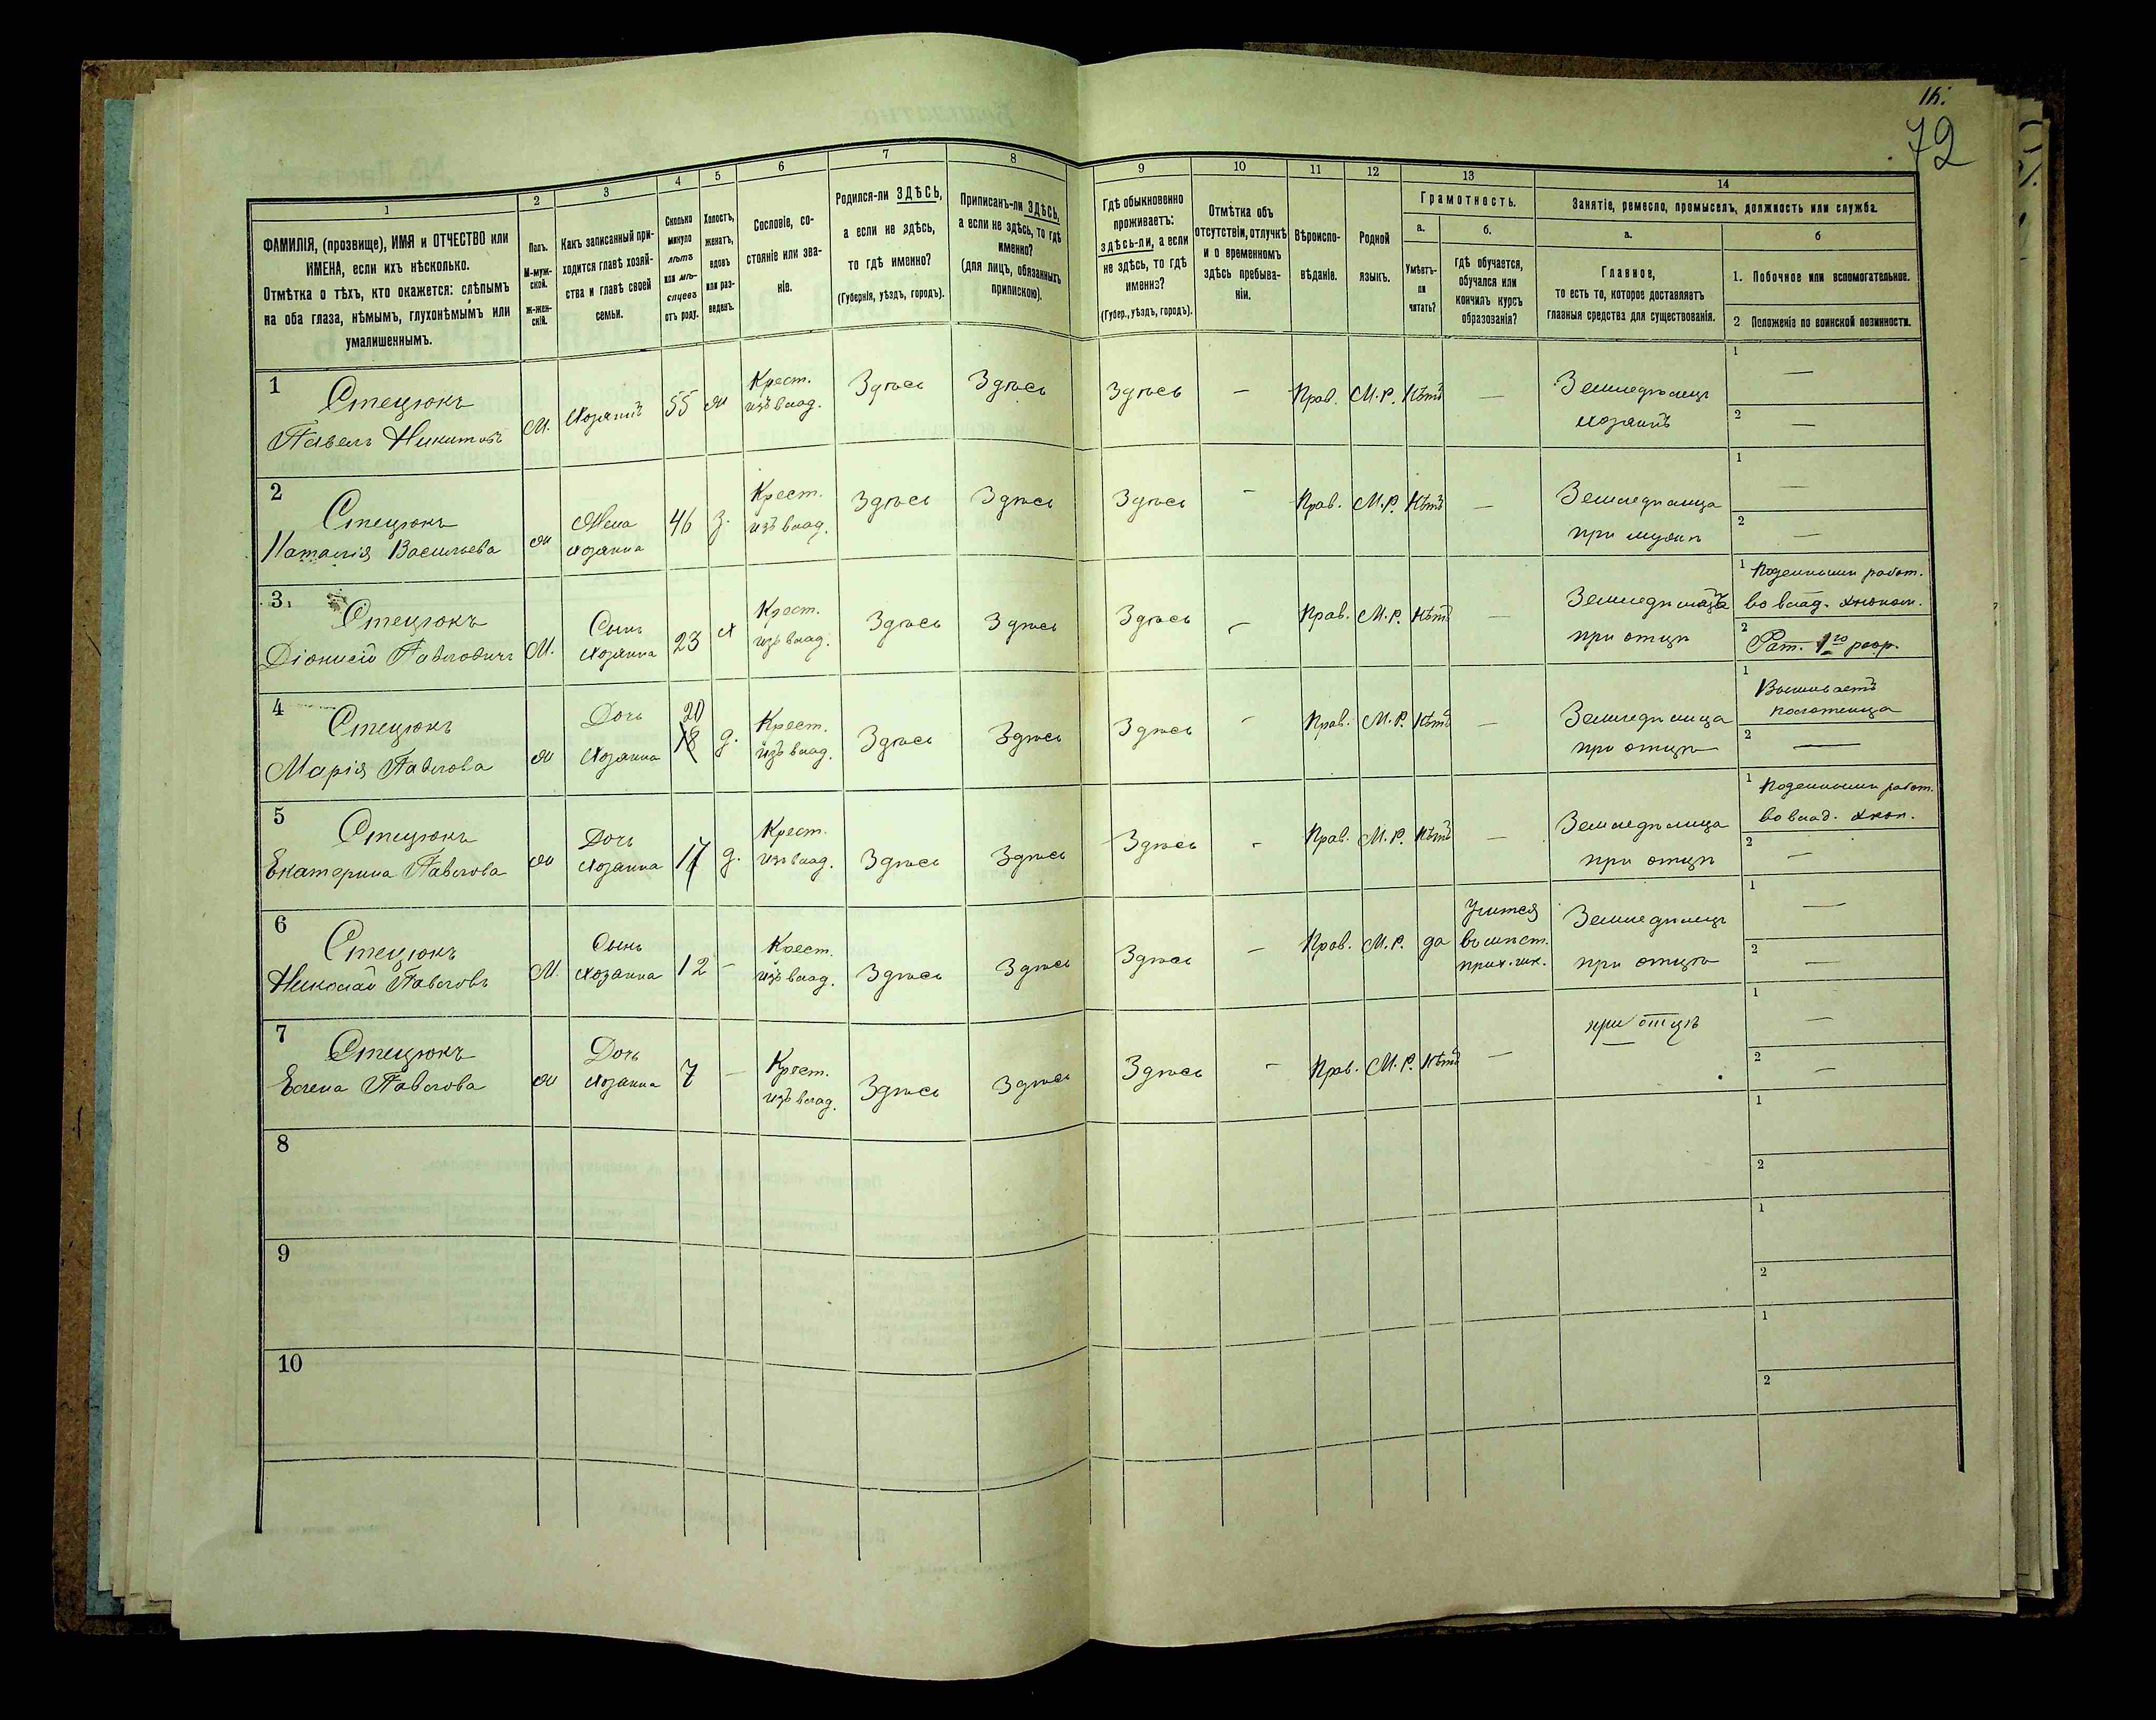 16.
72
1
ФАМИЛІЯ, (прозвище), ИМЯ и ОТЧЕСТВО или
ИМЕНА, если ихъ нѣсколько.
Отмѣтка о тѣхъ, кто окажется: слѣпымъ
на оба глаза, нѣмымъ, глухонѣмымъ или
умалишеннымъ.
2
Полъ.
М-муж-
ской.
ж-жен-
скій.
3
Какъ записанный при-
ходится главѣ хозяй-
ства и главѣ своей
семьи.
4
Сколько
минуло
лѣтъ
или мѣ-
сяцевъ
отъ роду.
5
Холостъ,
женатъ,
вдовъ
или раз-
веденъ.
6
Сословіе, со-
стояніе или зва-
ніе.
7
Родился-ли ЗДѢСЬ,
а если не здѣсь,
то гдѣ именно?
(Губернія, уѣздъ, городъ).
8
Приписанъ-ли ЗДѢСЬ,
а если не здѣсь, то гдѣ
именно?
(для лицъ, обязанныхъ
припискою).
9
Гдѣ обыкновенно
проживаетъ:
здѣсь-ли, а если
не здѣсь, то гдѣ
именно?
(Губер., уѣздъ, городъ).
10
Отмѣтка объ
отсутствіи, отлучкѣ
и о временномъ
здѣсь пребыва-
ніи.
11
Вѣроиспо-
вѣданіе.
12
Родной
языкъ.
13
Грамотность.
а.
Умѣетъ-
ли
читать?
б.
гдѣ обучается,
обучался или
кончилъ курсъ
образованія?
14
Занятіе, ремесло, промыселъ, должность или служба.
а.
Главное,
то есть то, которое доставляетъ
главныя средства для существованія.
б
1. Побочное или вспомогательное.
2 Положеніе по воинской повинности.
1
Стецюкъ
Павелъ Никитовъ
М.
Хозяинъ
55
ж
Крест.
изъ влад.
Здѣсь
Здѣсь
Здѣсь
—
Прав.
М.Р.
Нѣтъ
—
Земледѣлецъ
хозяинъ
1
—
2
—
2
Стецюкъ
Наталія Васильева
ж
Жена
хозяина
46
з.
Крест.
изъ влад.
Здѣсь
Здѣсь
Здѣсь
—
Прав.
М.Р.
Нѣтъ
—
Земледѣлица
при мужѣ
1
—
2
—
3
Стецюкъ
Діонисій Павловичъ
М.
Сынъ
хозяина
23
х
Крест.
изъ влад.
Здѣсь
Здѣсь
Здѣсь
—
Прав.
М.Р.
Нѣтъ
—
Земледѣлецъ
при отцѣ
1 Поденныхъ работ.
во влад. эконом.
2
Рат. 1го разр.
4
Стецюкъ
Марія Павлова
ж
Дочь
хозяина
20
18
д.
Крест.
изъ влад.
Здѣсь
Здѣсь
Здѣсь
—
Прав.
М.Р.
Нѣтъ
—
Земледѣлица
при отцѣ
1
Вышиваетъ
полотенца
2
—
5
Стецюкъ
Екатерина Павлова
ж
Дочь
хозяина
17
д.
Крест.
изъ влад.
Здѣсь
Здѣсь
Здѣсь
—
Прав.
М.Р.
Нѣтъ
—
Земледѣлица
при отцѣ
1 Поденныхъ работ.
во влад. экон.
2
—
6
Стецюкъ
Николай Павловъ
М.
Сынъ
хозяина
12
—
Крест.
изъ влад.
Здѣсь
Здѣсь
Здѣсь
—
Прав.
М.Р.
да
Учится
въ мѣст.
прих. шк.
Земледѣлецъ
при отцѣ
1
—
2
—
7
Стецюкъ
Елена Павлова
ж
Дочь
хозяина
7
—
Крест.
изъ влад.
Здѣсь
Здѣсь
Здѣсь
—
Прав.
М.Р.
Нѣтъ
—
при отцѣ
1
—
2
—
8
1
2
9
1
2
10
1
2